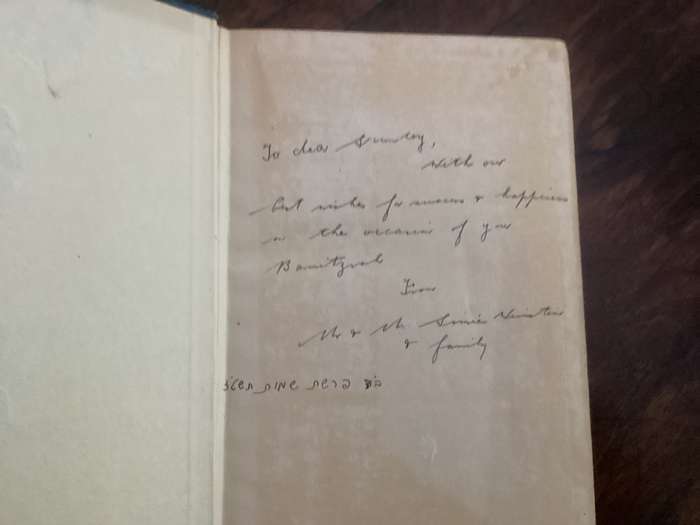 To dear
with our
best wishes for success & happiness
on the occasion of your
Barmitzvah
From
Mr & Mrs
& family
פרשת שמות